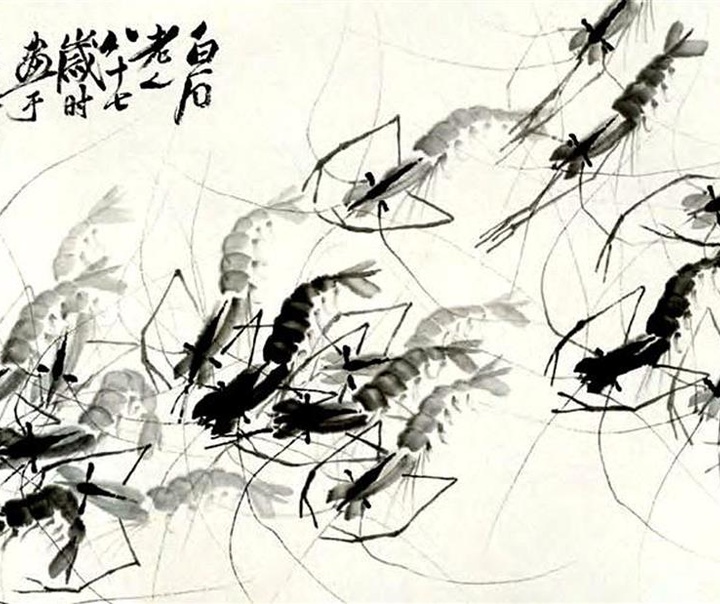 白石
老人
八十七
歲时
画于